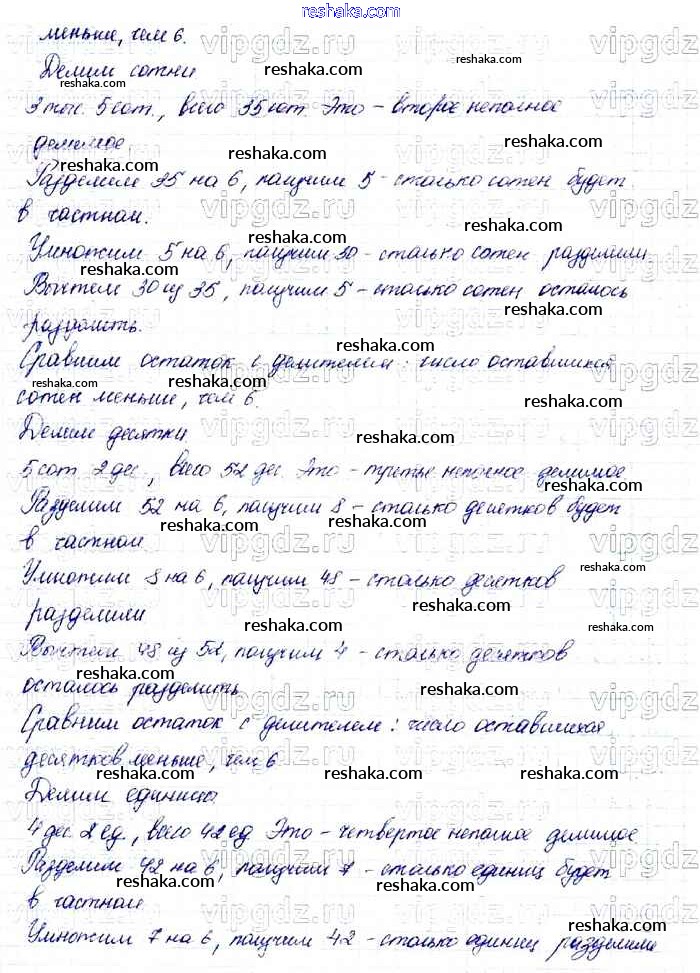 reshaka.com
меньше, чем 6.
Делим сотни
3 тыс. 5 сот., всего 35 сот. Это – второе неполное
делимое.
Разделим 35 на 6, получим 5 – столько сотен будет
в частном.
Умножим 5 на 6, получим 30 – столько сотен разделили.
Вычтем 30 из 35, получим 5 – столько сотен осталось
разделить.
Сравним остаток с делителем: число оставшихся
сотен меньше, чем 6.
Делим десятки.
5 сот. 2 дес., всего 52 дес. Это – третье неполное делимое
Разделим 52 на 6, получим 8 – столько десятков будет
в частном.
Умножим 8 на 6, получим 48 – столько десятков
разделили
Вычтем 48 из 52, получим 4 – столько десятков
осталось разделить
Сравним остаток с делителем: число оставшихся
десятков меньше, чем 6
Делим единицы.
4 дес. 2 ед., всего 42 ед. Это – четвертое неполное делимое.
Разделим 42 на 6, получим 7 – столько единиц будет
в частном.
Умножим 7 на 6, получим 42 – столько единиц разделили